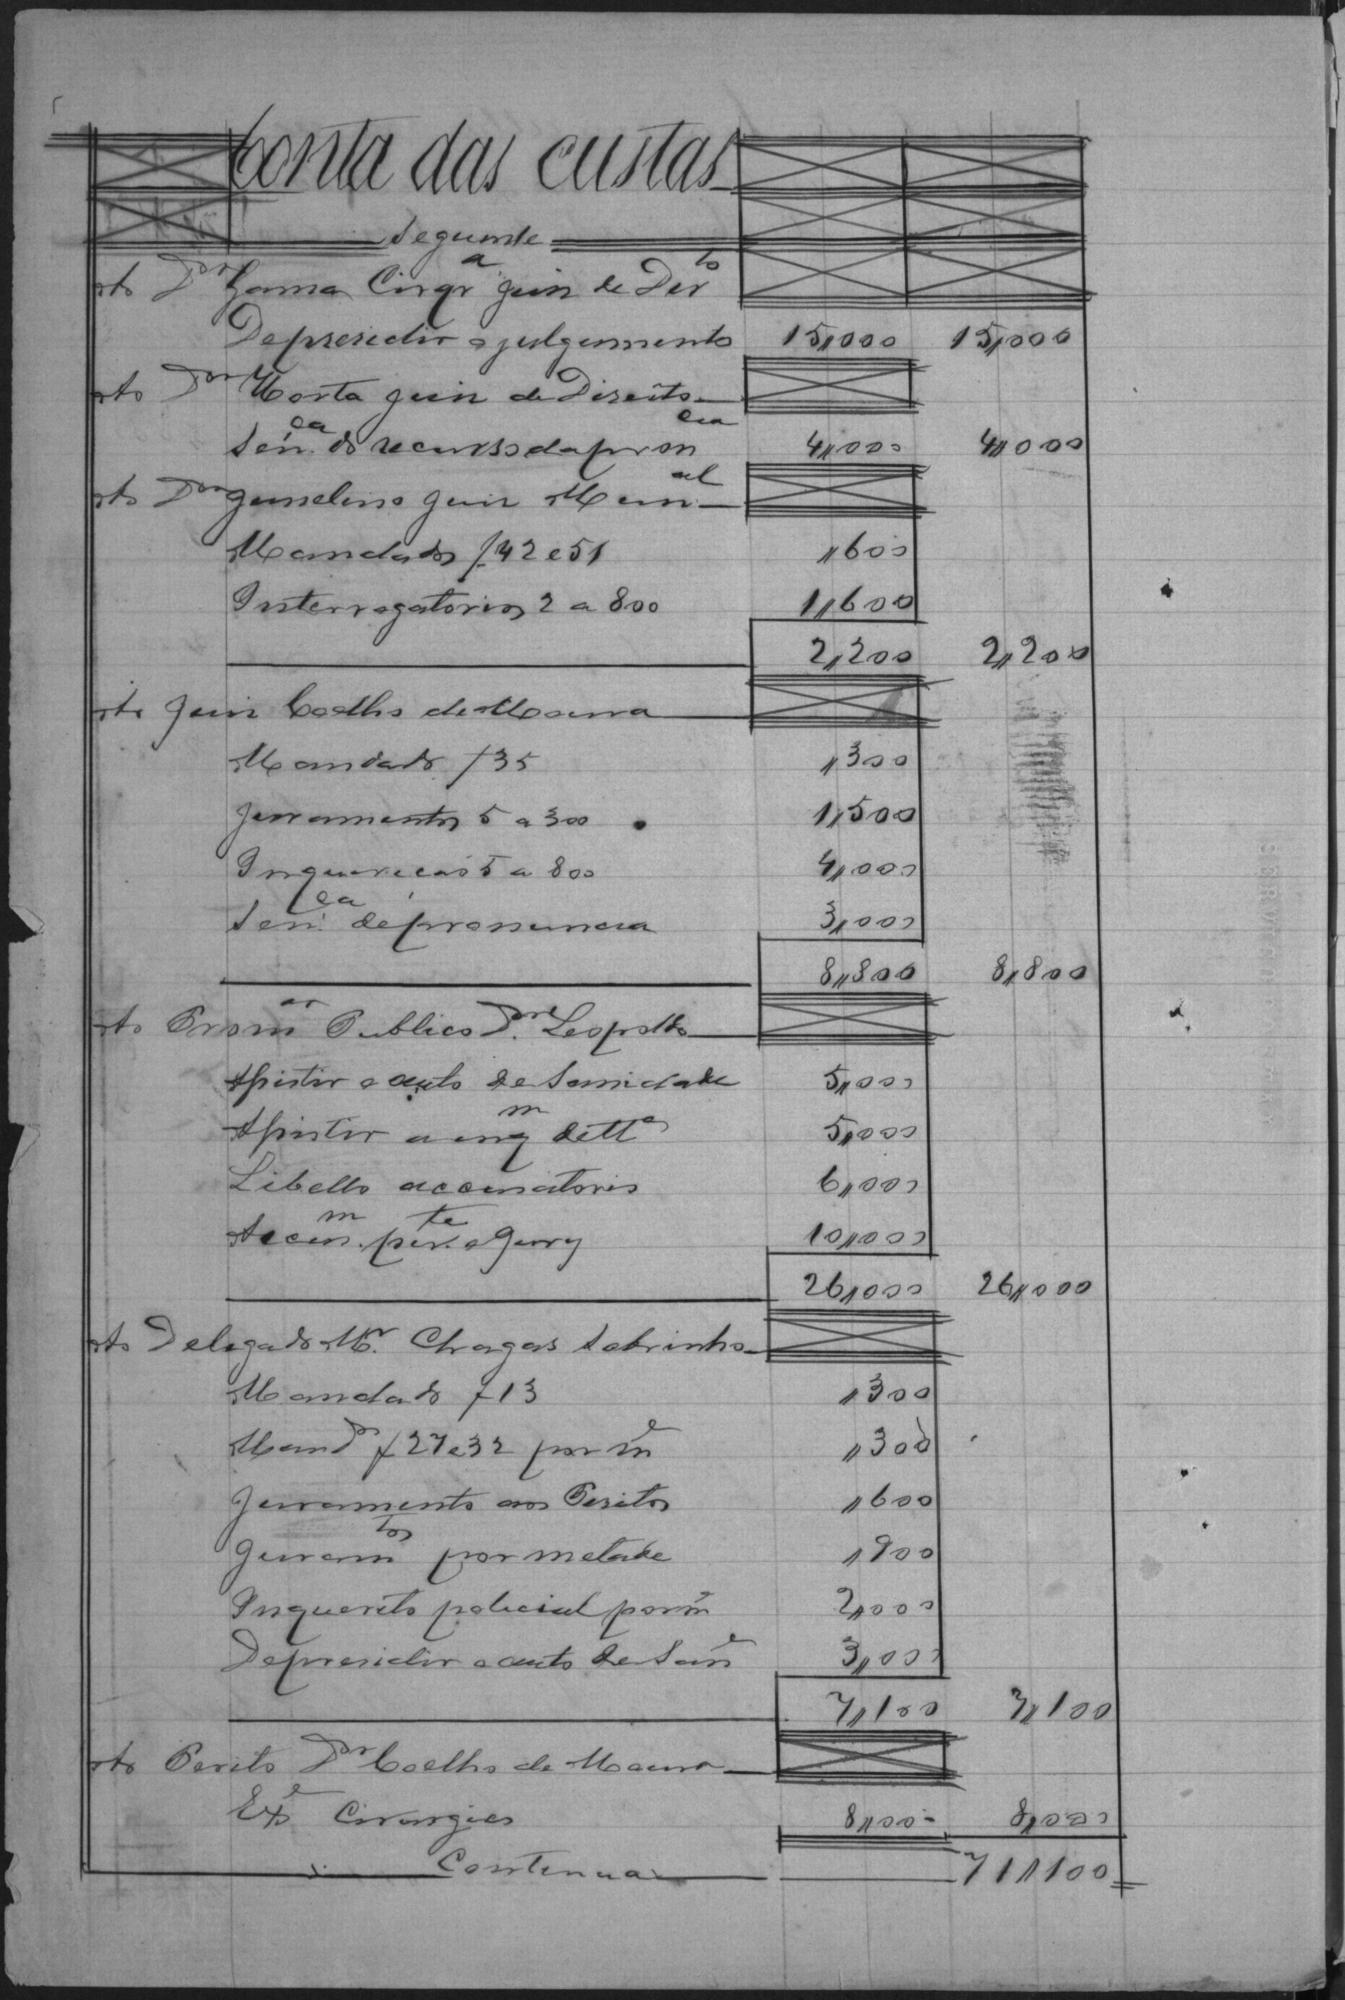 Conta das custas
Segunde
Ao Dor Gama Cirqra Juiz de Derto
De presidir o julgamento 15,000 15,000
Ao Dor Horta Juiz de Direito
Senca do recurso daproncia 4,000 4,000
Ao Dor Juiz Munal
Mandados f 42 e 51 ,600
Interrogatorios 2 a 800 1,600
2,200 2,200
Ao Juiz Coelho de Moura
Mandado f 35 ,300
Juramentos 5 a 300 1,500
Inquiricão 5 a 800 4,000
Senca de pronuncia 3,000
8,800 8,800
Ao Promor Publico Dor Leopoldo
Assistir o auto de Sanidade 5,000
Assistir a inqm detta 5,000
Libello accusatorio 6,000
Accusm perte o Jury 10,000
26,000 26,000
Ao Delegado Mr. Chagas Sobrinho
Mandado f 13 ,300
Mandos f 27 e 32 por me ,300
Juramento aos Peritos ,600
Juramtos por metade ,900
Inquerito policial por me 2,000
De presidir o auto de Sane 3,000
7,100 7,100
Ao Perito Dor Coelho de Moura
Exe Cirurgico 8,000 8,000
Continua 71,100